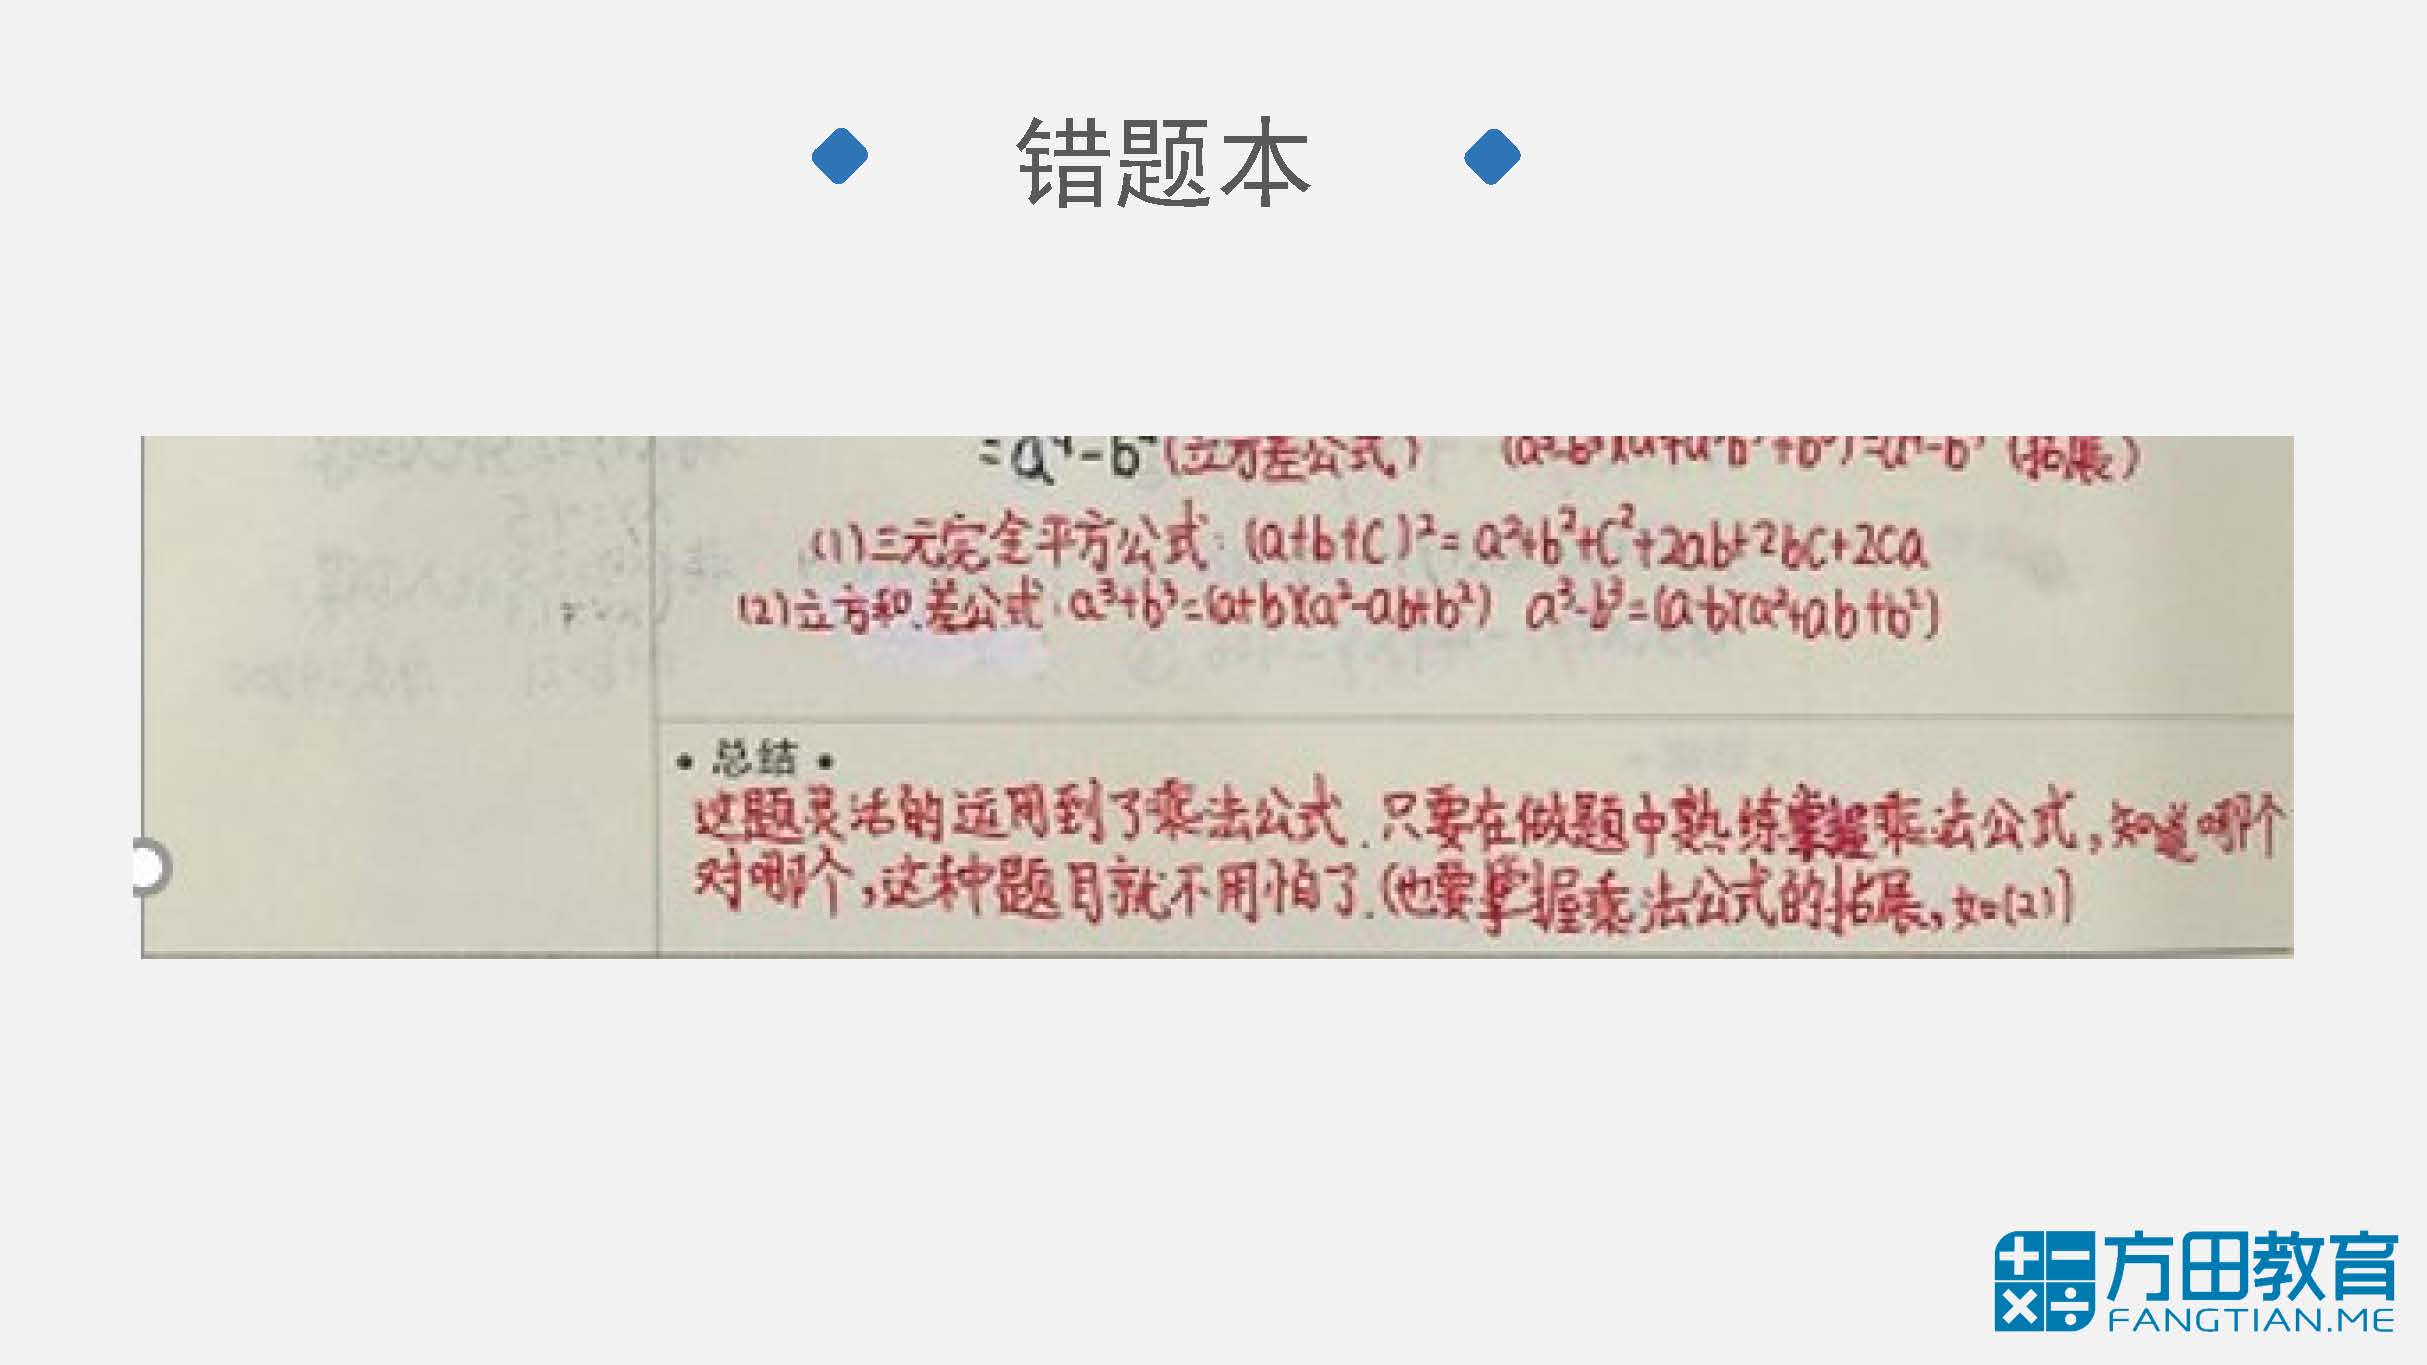 错题本
(立方差公式) (拓展)
(1)三元完全平方公式:(a+b+c)²=a²+b²+c²+2ab+2bc+2ca
(2)立方和.差公式:a³+b³=(a+b)(a²-ab+b²) a³-b³=(a-b)(a²+ab+b²)
• 总结 •
这题灵活的运用到了乘法公式.只要在做题中熟练掌握乘法公式,知道哪个
对哪个,这种题目就不用怕了.(也要掌握乘法公式的拓展,如(2))
方田教育
FANGTIAN.ME